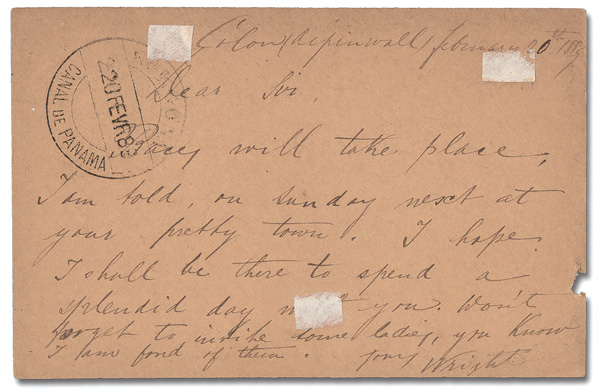 Colon (Aspinwall) february 20th 1883
Dear Sir,
CANAL DE PANAMA
20 FEVR 83
Races will take place,
I am told, on Sunday next at
your pretty town. I hope
I shall be there to spend a
splendid day you. Won't
forget to invite some ladies, you know
I am fond of them. yours
Wright